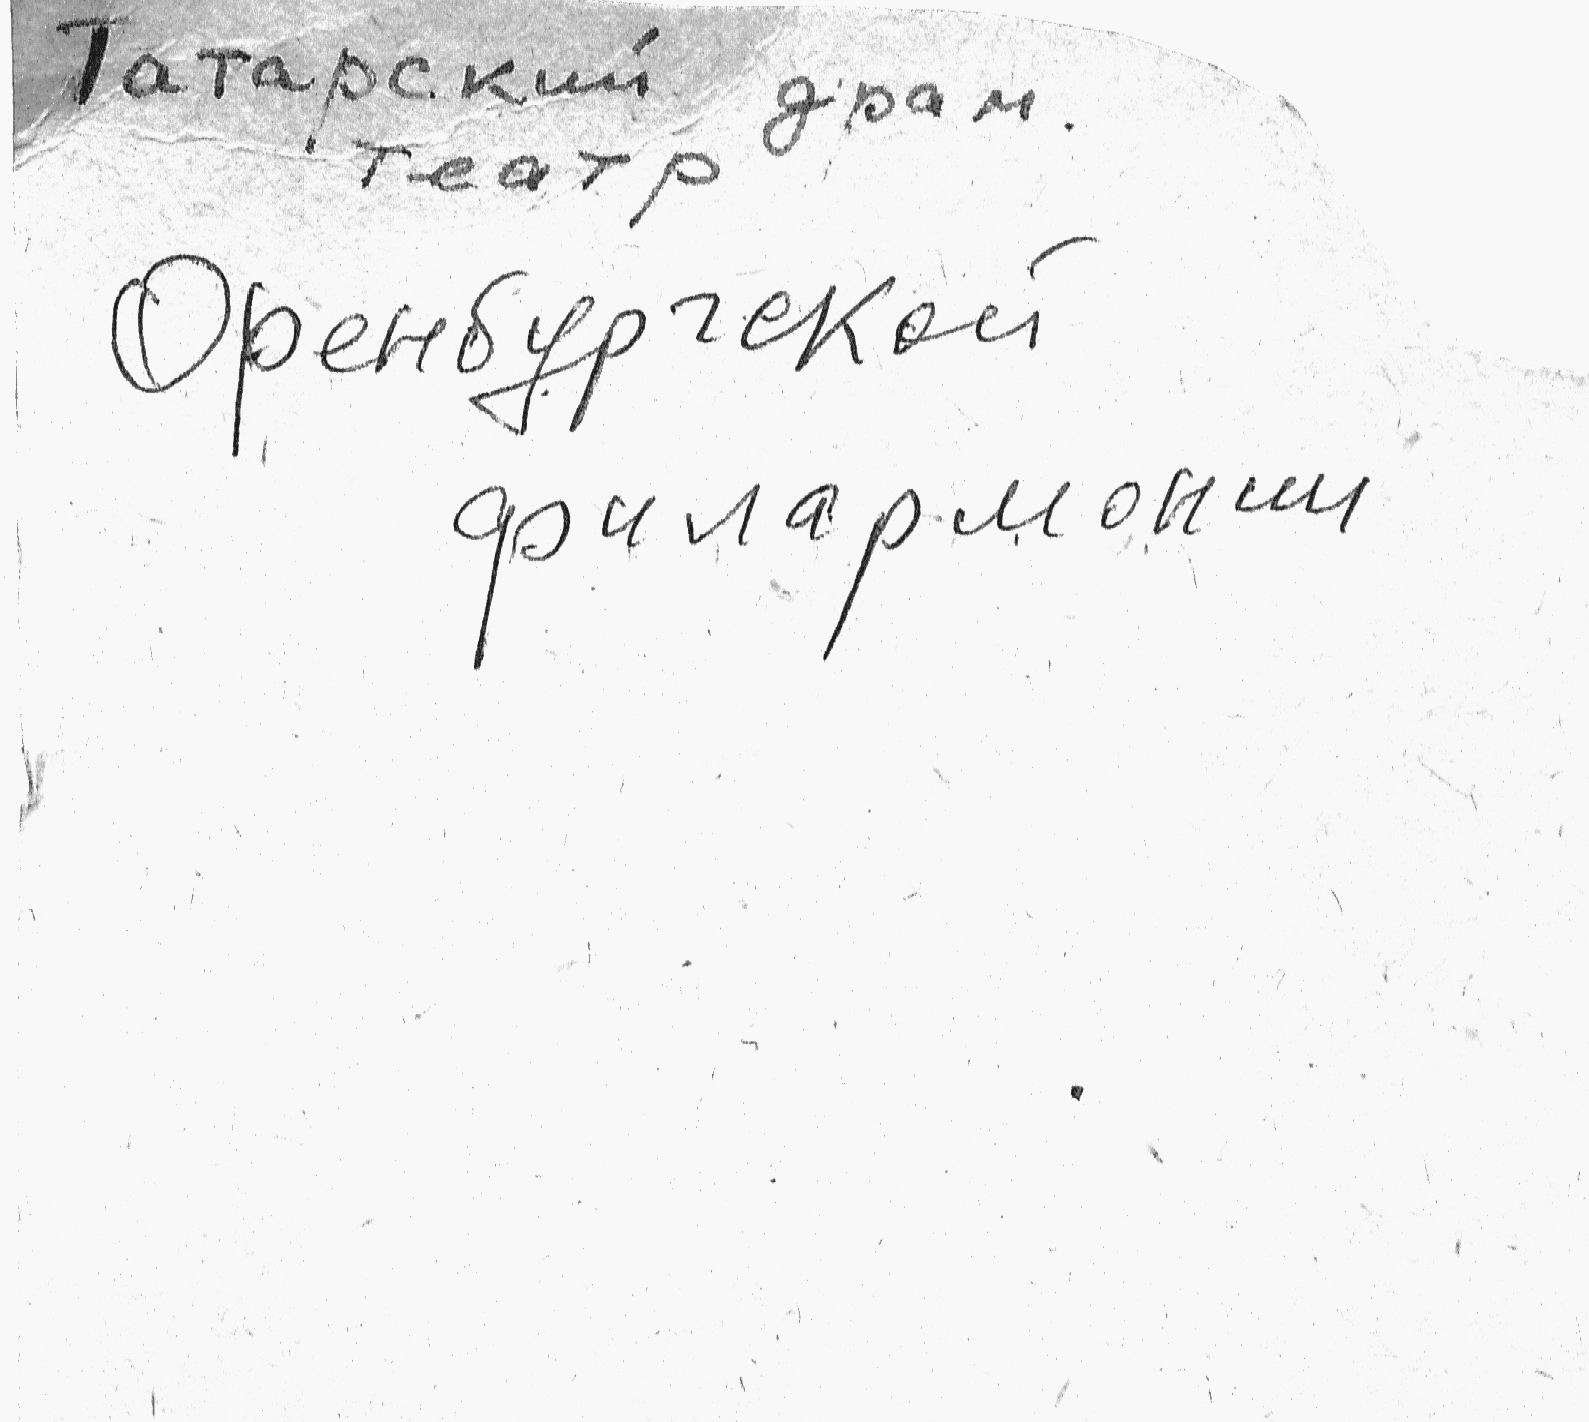 Татарский драм.
театр
Оренбургской
филармонии